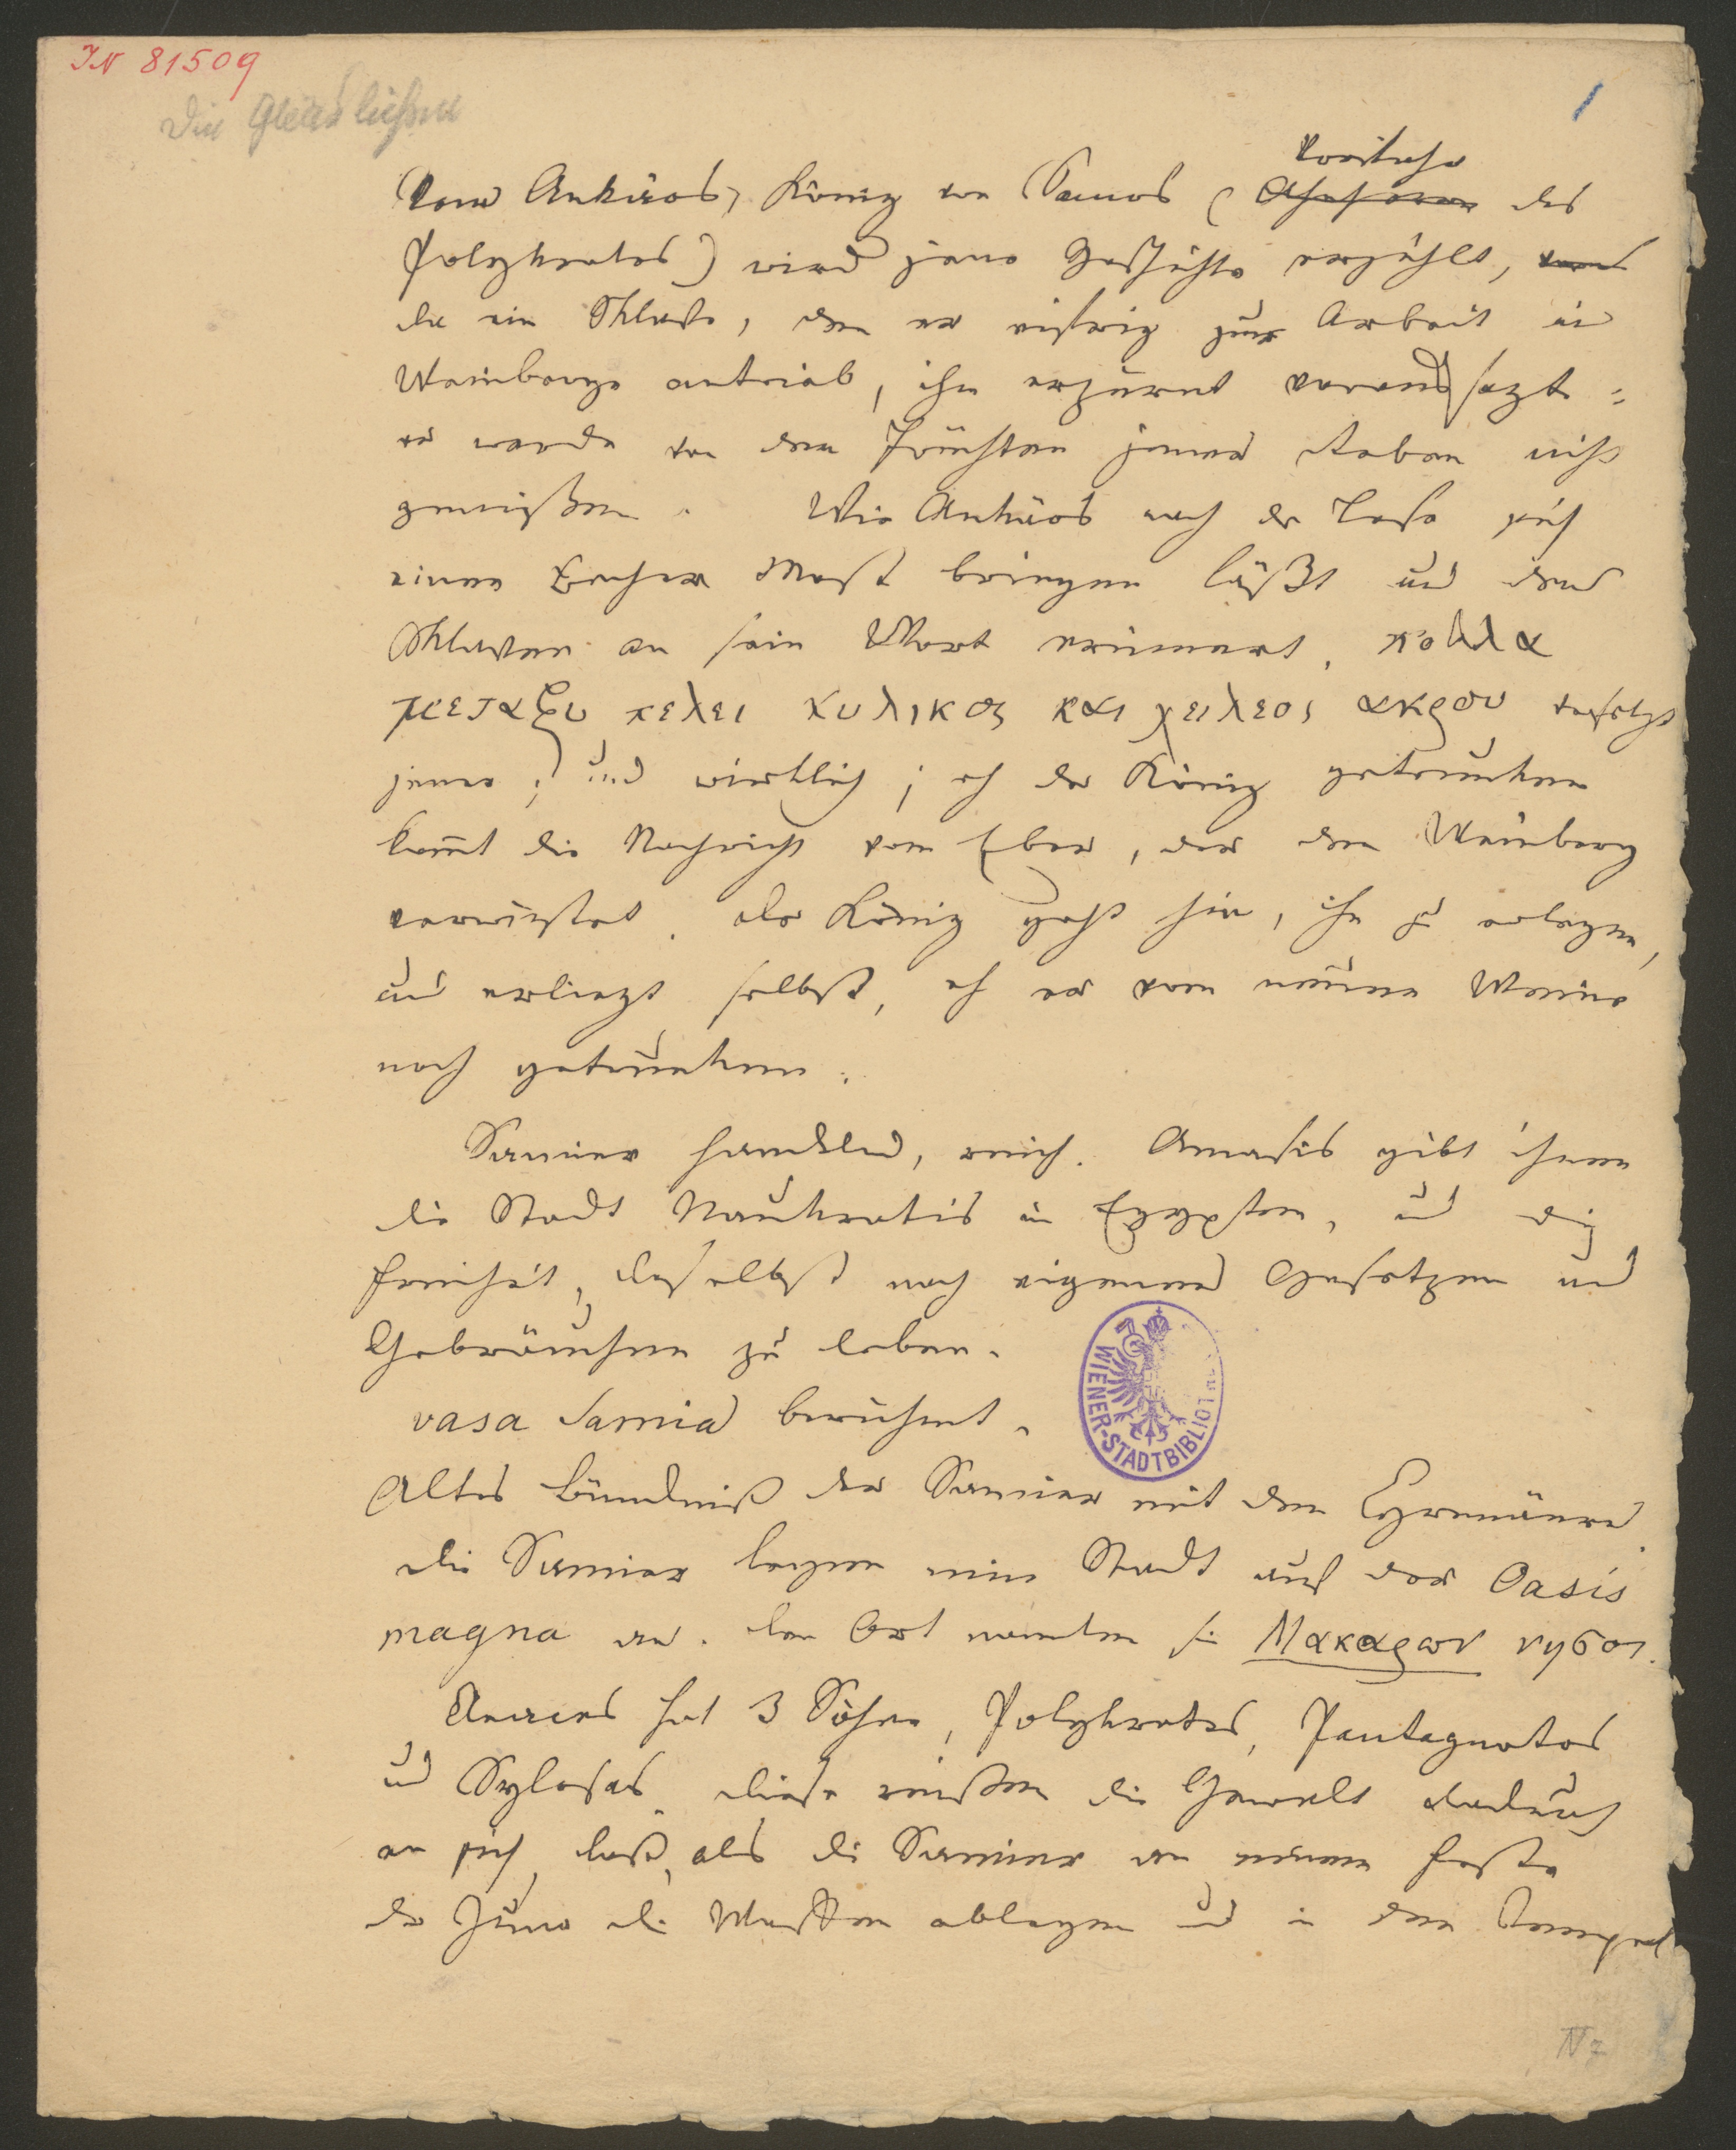 IN 81509
1
Die Glücklichen
Vom Ankäos, König von Samos (Ahnherrn voritaho des
Polykrates) wird jene Geschichte erzählt, 
da ein Sklave, den er eifrig zur Arbeit im
Weinberge antrieb, ihm erzürnt voraussagt:
er werde von den Früchten jener Reben nicht
genießen. Wie Ankäos nach der Lese sich
einen Becher Most bringen läßt und den
Sklaven an sein Wort erinnert, πολλα
μεταξυ πελει κυλικος και χειλεος ακρου versetzt
jener; und wirklich; eh der König getrunken
kom̅t die Nachricht vom Eber, der den Weinberg
verwüstet. der König geht hin, ihn zu erlegen,
und erliegt selbst, eh er vom neuen Weine
noch getrunken.
Samier handelnd, reich. Amasis gibt ihnen
die Stadt Naukratis in Egypten, und die
Freiheit, daselbst nach eigenen Gesetzen und
Gebräuchen zu leben.
vasa Samia berühmt.
WIENER-STADTBIBLIOT
Altes Bündniß der Samier mit den Cyrenäern.
die Samier legen eine Stadt auf der Oasis
magna an. den Ort nannten sie Μακαρων νησοι.
Aeaces hat 3 Söhne, Polykrates, Pantagnotos
und Sylosas. diese reißen die Gewalt dadurch
an sich, daß, als die Samier an einem Feste
der Juno die Waffen ablegen und in den Tempel